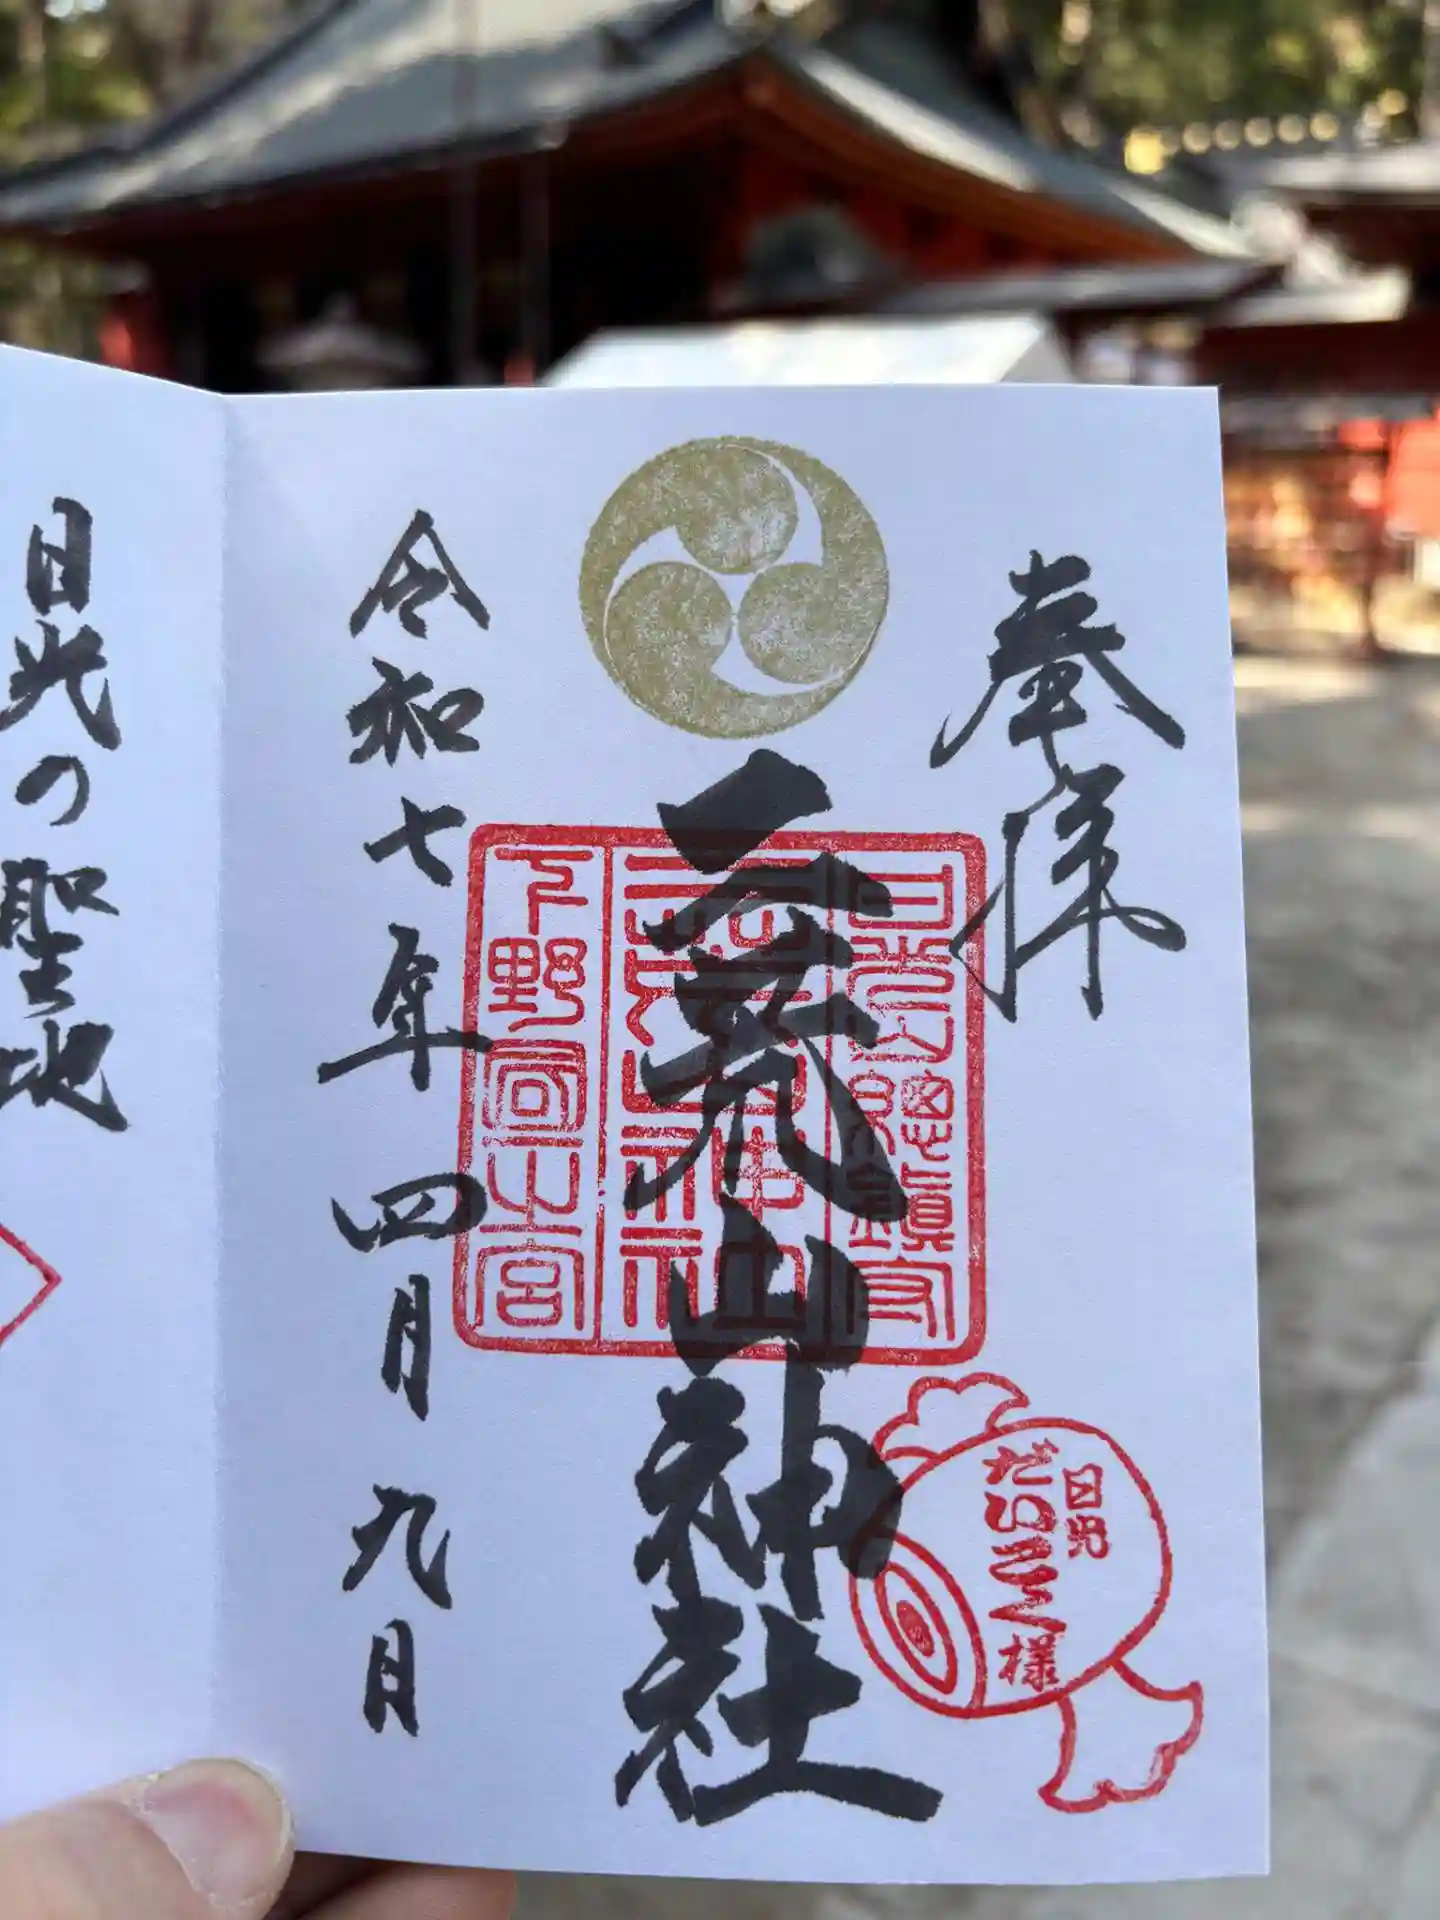 奉拝
日光山總鎮守
二荒山神社
下野國一之宮
二荒山神社
日光
だいこく様
令和七年四月九日
日光の聖地